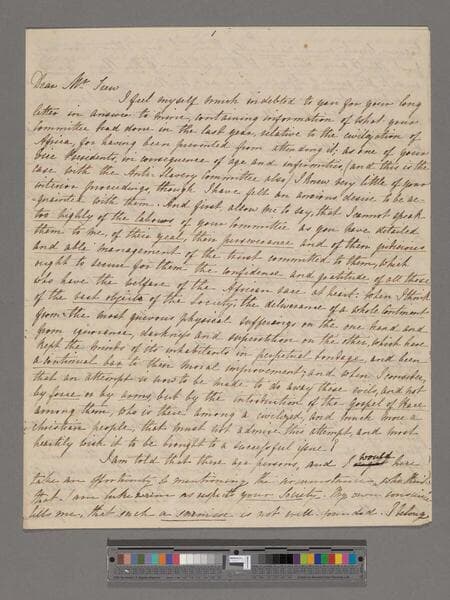 1
Dear Mr. Trew
I feel myself much indebted to you for your long
letter in answer to mine, containing information of what your
Committee had done in the last year, relative to the civilization of
Africa, for having been prevented from attending it, as one of your
Vice Presidents, in consequence of age and infirmities, (and this is the
case with the Anti Slavery Committee also) I knew very little of your
interior proceedings, though I have felt an anxious desire to be ac-
quainted with them. And first allow me to say, that I cannot speak
too highly of the labours of your Committee as you have detailed
them to me, of their zeal, their perseverance and of their judicious
and able management of the trust committed to them, which
ought to secure for them the confidence and gratitude of all those
who have the welfare of the African race at heart. When I think
of the best objects of the Society, the deliverance of a whole Continent
from the most grievous physical sufferings on the one hand and
from ignorance, darkness and superstition on the other, which have
kept the minds of its inhabitants in perpetual bondage, and been
a continual bar to their moral improvement, and when I consider,
that an attempt is now to be made to do away these evils, and not
by force or by arms, but by the introduction of the Gospel of Peace
among them, who is there among a civilized, and much more a
Christian people, that must not admire this attempt, and most
heartily wish it to be brought to a successful issue!
I am told that there are persons, and I would here
take an opportunity of mentioning the circumstance, who think
that I am lukewarm as respects your Society. My own conscience
tells me, that such a surmise is not well founded. I belong